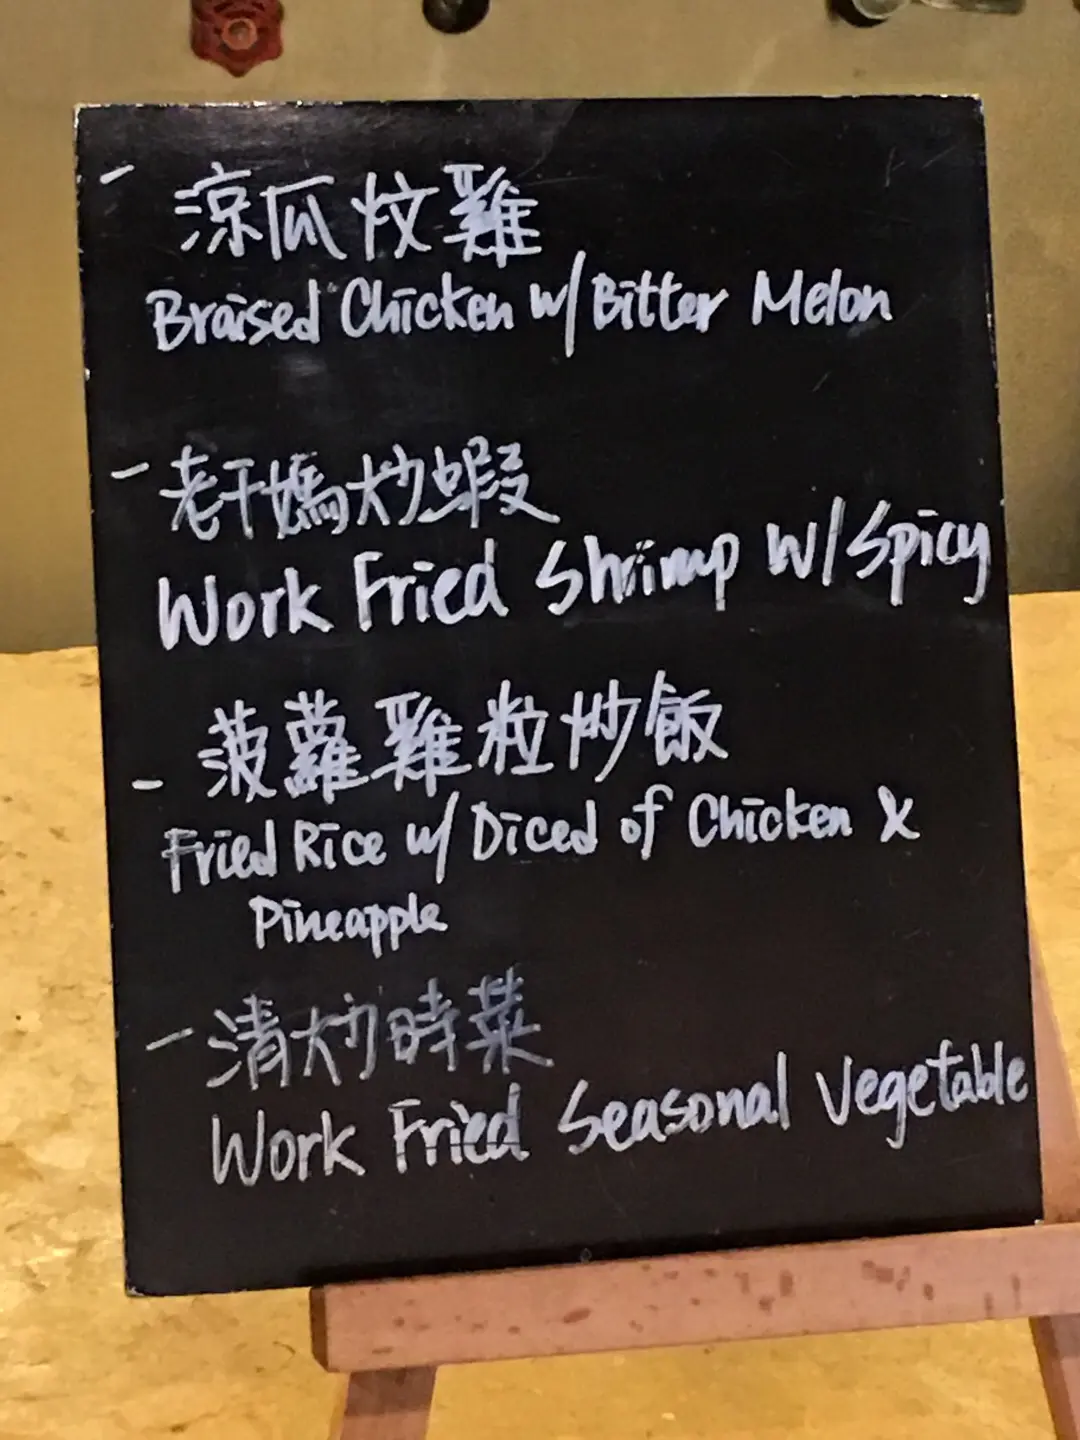 - 涼瓜炆雞
Braised Chicken w/ Bitter Melon
- 老干媽炒蝦
Work Fried Shrimp w/ Spicy
- 菠蘿雞粒炒飯
Fried Rice w/ Diced of Chicken &
Pineapple
- 清炒時菜
Work Fried Seasonal Vegetable